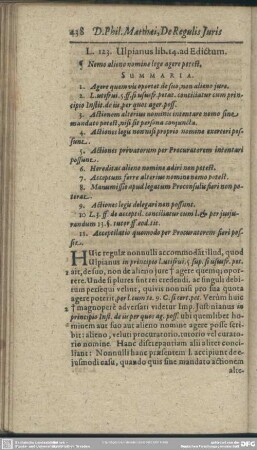 438 D. Phil. Matthæi, De Regulis Juris
L. 123. Ulpianus lib. 14. ad Edictum.
¶ Nemo alieno nomine lege agere potest.
SUMMARIA.
1. Agere quemvis oportet de suo, non alieno jure.
2. L. usufrui. 5. ff. si ususfr. petat. conciliatur cum prin-
cipio Instit. de iis, per quos ager. poss.
3. Actionem alterius nomine intentare nemo sine man-
dato potest, nisi sit persona conjuncta.
4. Actiones legis nonnisi proprio nomine exerceri pos-
sunt.
5. Actiones privatorum per Procuratorem intentari
possunt.
6. Hereditas alieno nomine adiri non potest.
7. Acceptum ferre alterius nomine nemo potest.
8. Manumissio apud legatum Proconsulis fieri non po-
terat.
9. Actiones legis delegari non possunt.
10. L. 3. ff. de acceptil. conciliatur cum l. & per jusju-
randum 13. §. tutor ff. eod. tit.
11. Acceptilatio quomodo per Procuratorem fieri pos-
sit.
Huic regulæ nonnulli accommodāt illud, quod
Ulpianus in principio l. usufrui. 5. ff. si ususfr. pet.
ait, de suo, non de alieno jure † agere quemq; oportere.
Unde si plures sint rei credendi, ac singuli debitum
persequi velint, quivis nonnisi pro sua quota
agere poterit. per l. cum tu. 9. C. si cert. pet. Verum huic
† magnopere adversari videtur Imp. Justinianus in
principio Inst. de iis per quos ag. poss. ubi quemlibet hominem
aut suo aut alieno nomine agere posse scribit:
alieno, veluti procuratorio, tutorio vel curatorio
nomine. Hanc discrepantiam alii aliter conciliant:
Nonnulli hanc præsentem l. accipiunt de ejusmodi
casu, quando quis sine mandato actionem
alte-